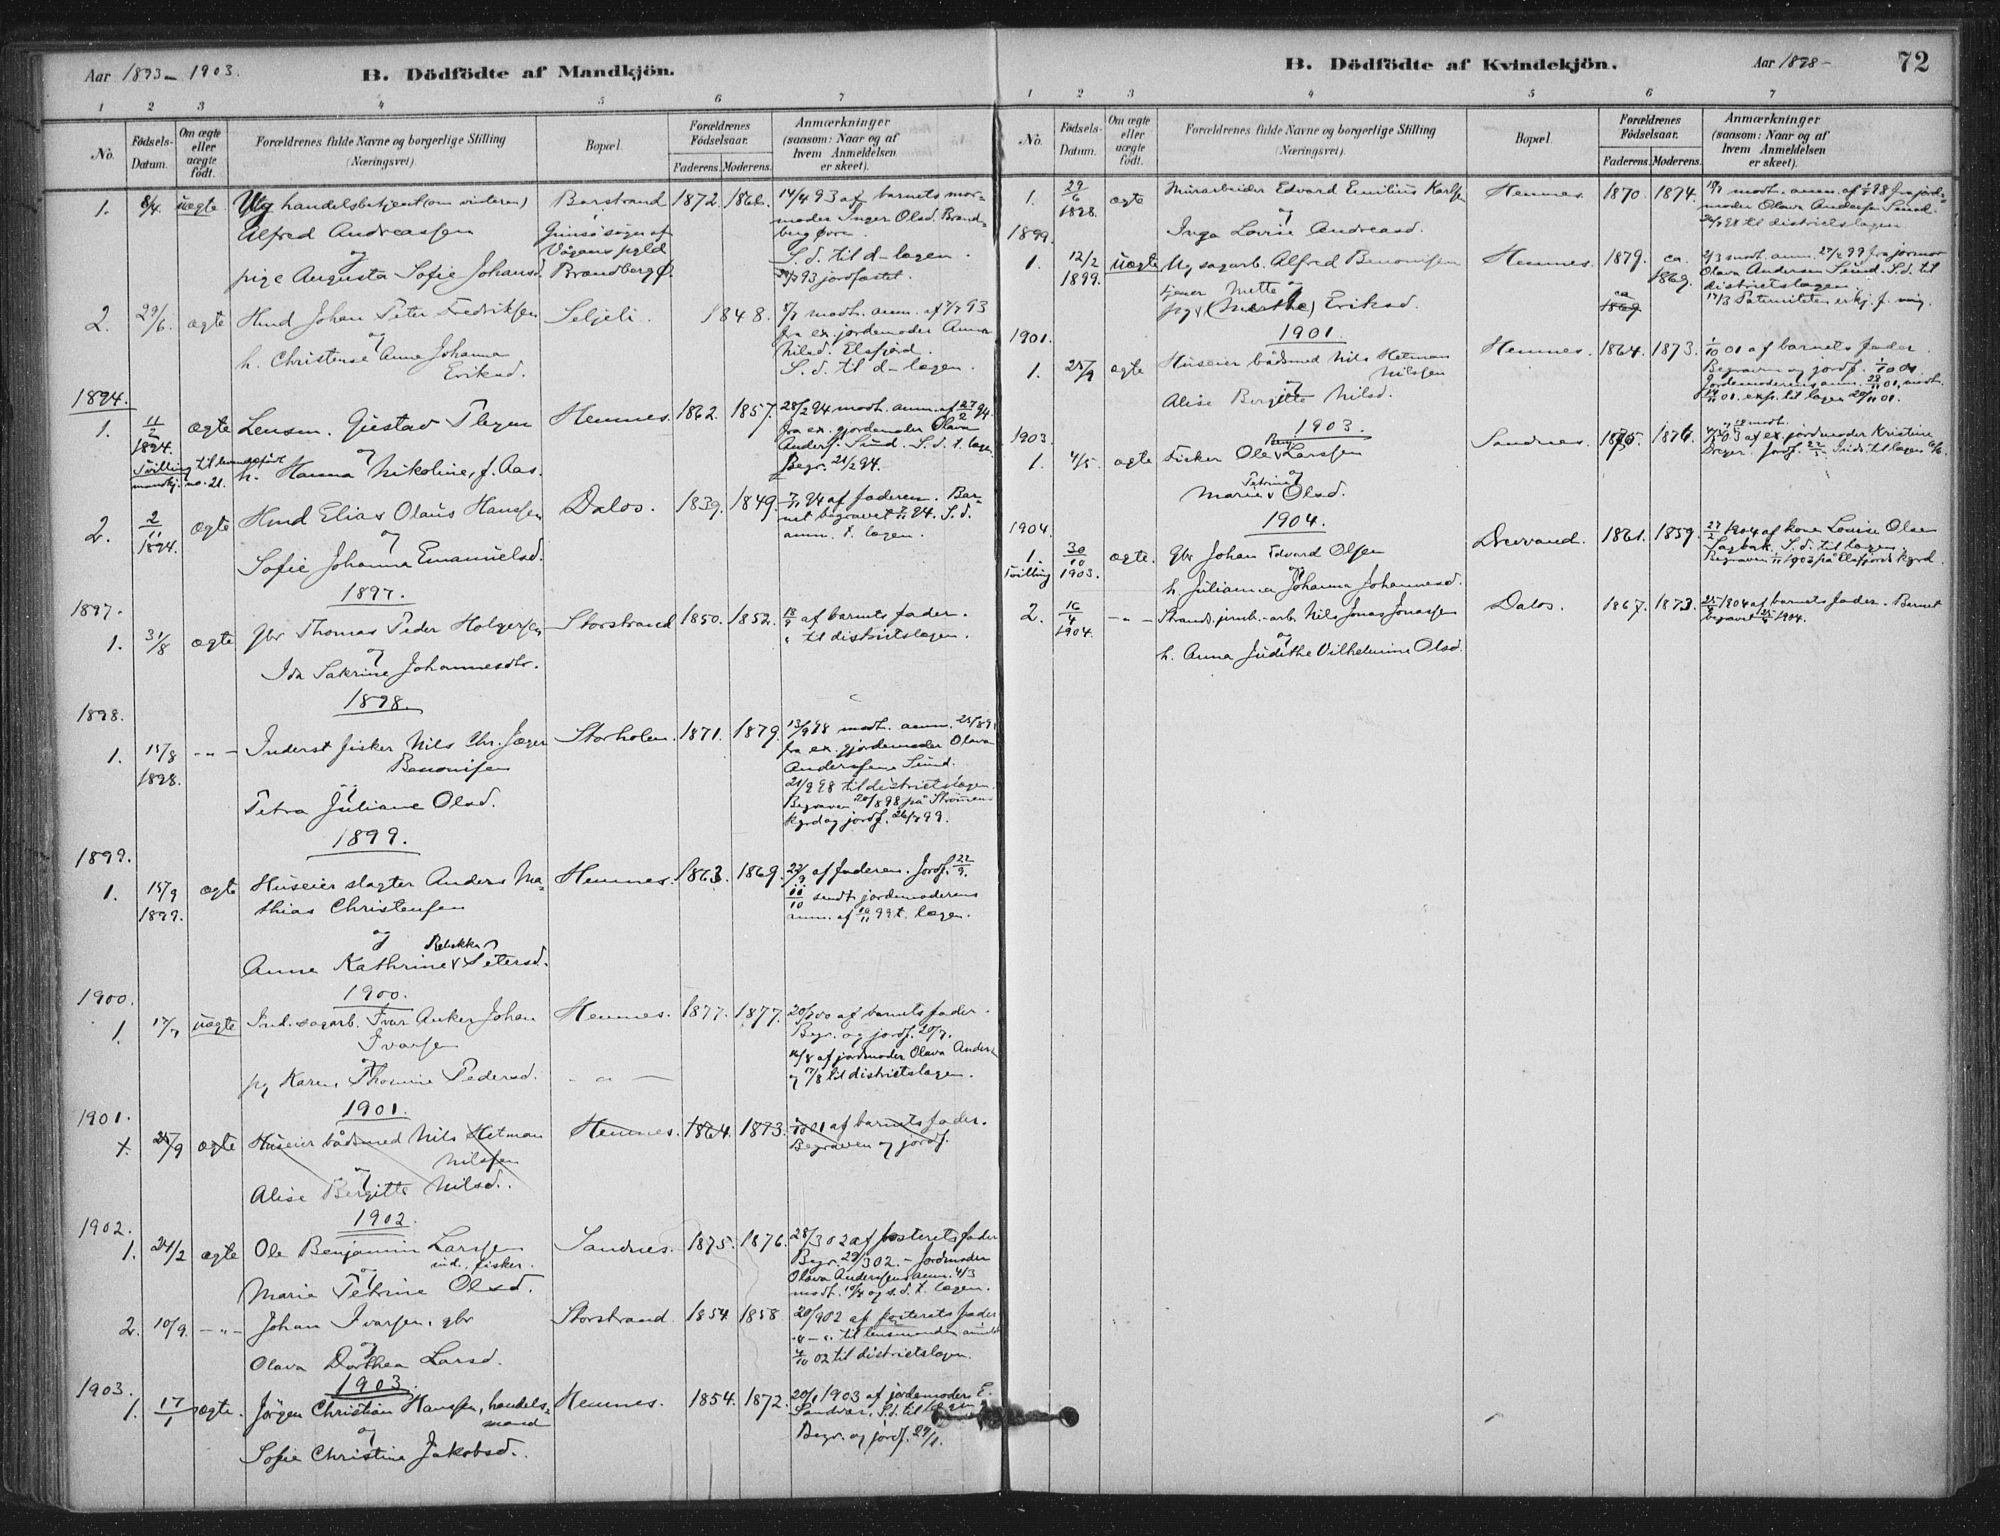 Aar 1893 - 1903.
B. Dödfödte af Mandkjön.
1 2 3 4 5 6 7
No.
Födsels-
Datum.
Om ægte
eller
uægte
födt.
Forældrenes fulde Navne og borgerlige Stilling
(Næringsvei).
Bopæl.
Forældrenes
Födselsaar.
Faderens. Moderens.
Anmærkninger
(saasom: Naar og af
hvem Anmeldelsen
er skeet).
1. uægte handelsbetjent (om vinteren) Barstrand 1872. 1866. 14/4 93 af barnets mor-
Alfred Andreassen Gimsö sogn af moder Inger Olsd. Brand-
og Vågans pgld
pige Augusta Sofie Johansd. Brandbergø. S. d. til d-lægen.
93 jordfæstet.
2. 29/6. ægte Hmd Johan Peter Fredriksen Seljeli. 1848. modt. anm. af 93
og fra ex. jordemoder Anna
h. Christense Anne Johanna Nilsd. Elsfjord.
Eriksd. S. d. til d-lægen.
1894.
1. 11/2 1894. ægte Lensm. Gustav Hemnes. 1862. 1857. 28/2 94 modt. anm. af 27/2 94.
fra ex. gjordemoder Olava
Tvilling til levendefødt og Anders. Sund. S. d. t. lægen.
mandkj. no. 21. h. Hanna Nikoline, f. Aas. Begr. 21/2 94.
2. 2/11 1894. ægte Hmd Elias Olaus Hanssen Dalos. 1839. 1849. 7/11 94 af faderen. Bar-
og net begravet 94. S. d.
Sofie Johanna Emanuelsd. anm. t. lægen.
1897.
1897.
1. 31/8 ægte Gbr Thomas Peder Holgersen Storstrand 1850. 1852. af barnets fader.
og til districtslægen.
Ida Sakrine Johannesdtr.
1898.
1898.
1. 15/8 1898. - " - Inderst fisker Nils Chr. Jæger Storholm. 1871. 1879. 13/9 98 modt. anm.
Benonisen fra ex. gjordemoder Olava
og Anderssen Sund.
Petra Juliane Olsd. 21/9 98 til districtslægen.
Begraven 20/8 98 på
kgrd og jordf. 99.
1899.
1899.
1. 15/9 1899. ægte Huseier slagter Anders Ma- Hemnes. 1863. 1869. 22/9 af faderen. Jordf. 22/9.
thias Christensen sendt jordemoderens
og Rebekka anm. af 99 t. lægen.
Anne Kathrine v Petersd.
1900.
1900.
1 17/7 uægte Ind. sagarb. Ivar Anker Johan Hemnes. 1877. 1877. 20/7 00 af barnets fader.
Ivarsen Begr. og jordf. 20/7.
og 16/8 af jordmoder Olava Anders.
pg Karen Thomine Pedersd. - " - og 17/8 til districtslægen.
1901.
1901.
1. 25/9 ægte Huseier bådsmed Nils Hetman Hemnes. 1864. 1873. 1/10 01 af barnets fader.
Nilssen Begraven og jordf.
og
Alise Bergitte Nilsd.
1902.
1902.
1. 24/2 ægte Ole Benjamin Larssen Sandnes. 1875. 1876. 28/3 02 af fosterets fader
ind. fisker. Begr. 29/3 02. - Jordmoder
og Olava Anderssens anm. 4/3
Marie Petrine Olsd. modt. og s. d. t. lægen.
2. 10/9. - " - Johan Ivarsen, gbr Storstrand. 1854. 1858. 20/9 02 af fosterets fader
og til lensmanden anmeldt
Olava Dorthea Larsd. 02 til districtslægen.
1903.
1903
1. 17/1 ægte. Jörgen Christian Hanssen, handels- Hemnes. 1854. 1872. 20/1 1903 af jordemoder E.
mand Sandvær. S. d. til lægen.
og Begr. og jordf. 29/1.
Sofie Christine Jakobsd.
B. Dödfödte af Kvindekjön.
Aar 1898 -
72
1 2 3 4 5 6 7
No.
Födsels-
Datum.
Om ægte
eller
uægte
födt.
Forældrenes fulde Navne og borgerlige Stilling
(Næringsvei).
Bopæl.
Forældrenes
Födselsaar.
Faderens. Moderens.
Anmærkninger
(saasom: Naar og af
hvem Anmeldelsen
er skeet).
1. 29/6 1898. ægte Murarbeider Edvard Emilius Karlsen Hemnes. 1870. 1874. modt. anm. af 98 fra jorde-
og moder Olava Andersen Sund.
Inga Lovise Andreasd. 98 til districtslægen
1899.
1. 12/2 1899. uægte Ug sagarb. Alfred Benonisen Hemnes. 1879. ca. 1869. 2/3 modt. anm. 27/2 99 fra jormor
og Olava Andersen Sund. S. d. til
tjener Mette districtslægen.
pg v (Merthe) Eriksd. ca 1869 17/3 Paterniteten erkj. f. mig.
1901.
1901.
1. 25/9 ægte Huseier bådsmed Nils Hetman Hemnes. 1864. 1873. 1/10 01 af barnets fader.
Nilssen Begraven og jordf. 1/10 01.
og Jordemoderens anm. 01, modt.
Alise Bergitte Nilsd. 01. exp. til lægen 20/11 01.
1903.
1903
1. 4/5 ægte Fisker Ole Benj. v Larssen Sandnes. 1875. 1876. 03 af ex. jordmoder Kristine
og Dreyer. Jordf. Inds. til lægen
Marie Petrine v Olsd.
1904.
1904
1. 30/10 1903. ægte. Gbr Johan Edvard Olsen Drevvand. 1861. 1859. 27/2 1904 af kone Lovise Olsen
Tvilling og S. d. til lægen.
h. Julianna Johanna Johannesd. Begraven 1903 på Elsfjords kgrd.
2. 16/4 1904. - " - Strands. jernb.-arb. Nils Jonas Jonassen Dalos. 1867. 1873. 1904 af barnets fader. Barnet
og begravet 1904.
h. Anna Judithe Vilhelmine Olsd.